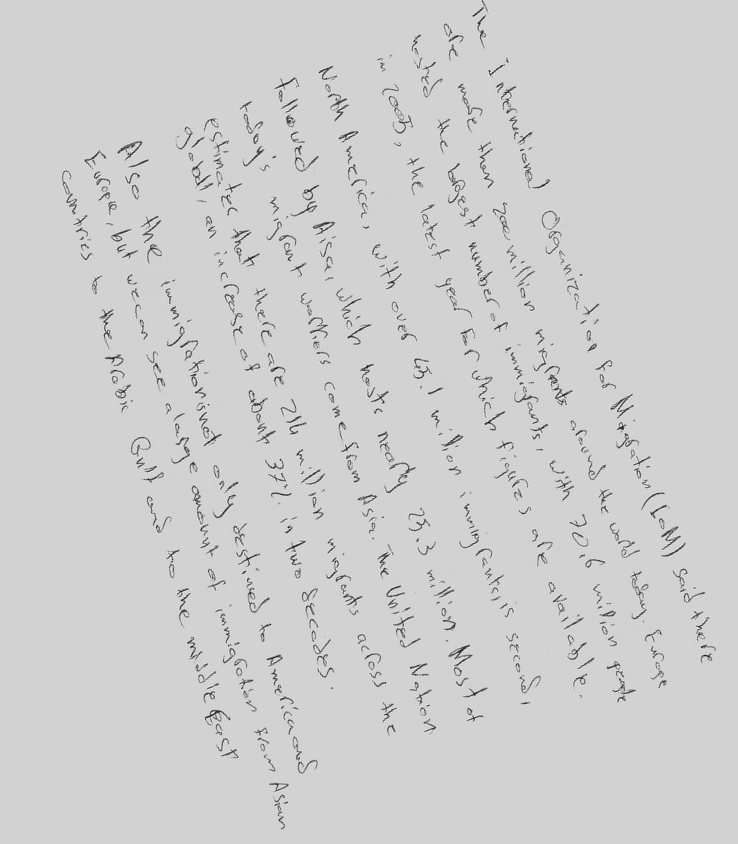 The International Organization for Migration (IoM) said there
are more than 200 million migrants around the world today. Europe
hosted the largest number of immigrants, with 70.6 million people
in 2005, the latest year for which figures are available.
North America, with over 45.1 million immigrants, is second,
followed by Aisa, which hosts nearly 25.3 million. Most of
today's migrant workers come from Asia. The United Nation
estimates that there are 214 million migrants across the
globall, an increase of about 37% in two decades.
Also the immigration is not only destined to America and
Europe, but we can see a large amount of immigration from Asian
countries to the Arabic Gulf and to the middle East